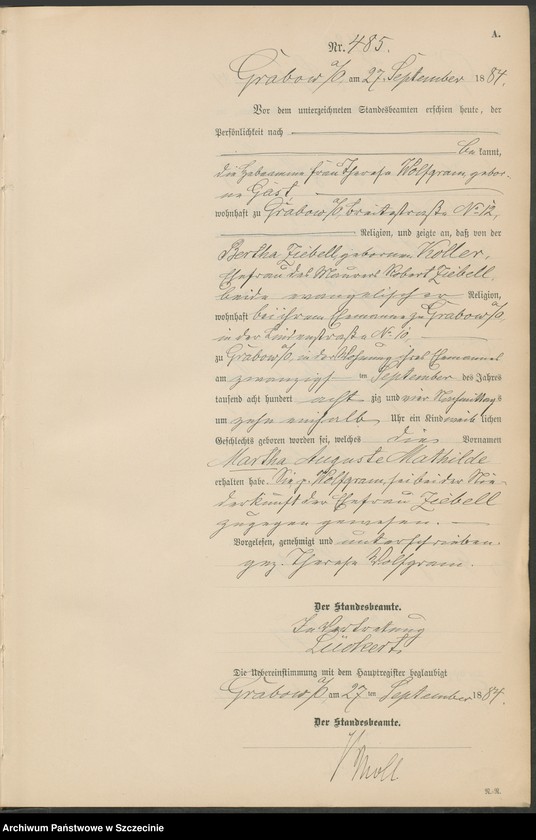 A.
Nr. 485.
Grabow a/O. am 27. September 1884.
Vor dem unterzeichneten Standesbeamten erschien heute, der
Persönlichkeit nach
bekannt,
die Hebeamme Frau Therese Wolfgram, gebor-
ne Gast
wohnhaft zu Grabow a/O, Breitestraße No 12,
Religion, und zeigte an, daß von der
Bertha Ziebell, geborenen Koller,
Ehefrau des Maurers Robert Ziebell
beide evangelischer Religion,
wohnhaft bei ihrem Ehemanne zu Grabow a/O,
in der Lindenstraße No 10,
zu Grabow a/O, in der Wohnung ihres Ehemannes
am zwanzigsten September des Jahres
tausend acht hundert achtzig und vier Nachmittags
um zehn einhalb Uhr ein Kind weiblichen
Geschlechts geboren worden sei, welches die Vornamen
Martha Auguste Mathilde
erhalten habe. Sie, p. Wolfgram, sei bei der Nie-
derkunft der Ehefrau Ziebell
zugegen gewesen.
Vorgelesen, genehmigt und unterschrieben.
gez. Therese Wolfgram.
Der Standesbeamte.
In Vertretung
Lückert.
Die Uebereinstimmung mit dem Hauptregister beglaubigt
Grabow a/O, am 27ten September 1884.
Der Standesbeamte.
Knoll
R.-R.
Archiwum Państwowe w Szczecinie